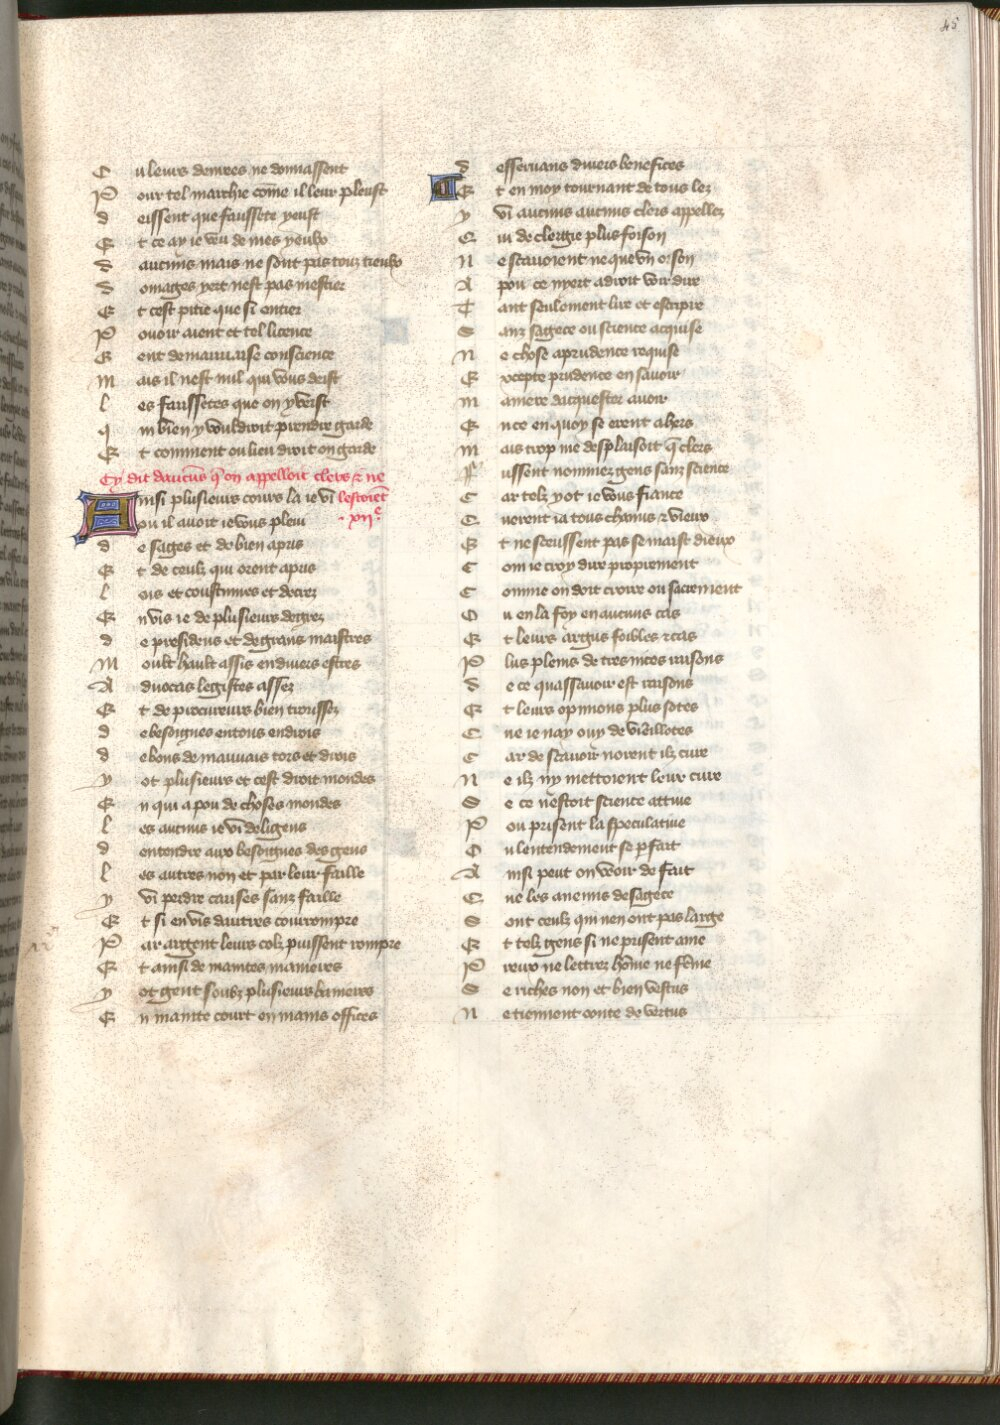 45
C u leurs denrees ne donnassent
P our tel marchie come il leur pleust
d eissent que faussete yeust
E t ce ay ie veu de mes yeulx
d aucuns mais ne sont pas touz tieulx
d omages yert nest pas mestier
E t cest pitie que si entier
P ouoir aient et tel licence
G ent de mauuaise conscience
M ais il nest nul qui vous deist
l es faussetes que on y veist
q ui bien y vouldroit prendre garde
E t comment ou lieu droit on garde
Cy dit daucuns qon appelloit clers et ne
Ainsi plusieurs cours la ie vi lestoient
ou il auoit ie vous pleui .xvii.e
d e sages et de bien apris
E t de ceulx qui orent apris
l ois et coustumes et decrez
E n vis ie de plusieurs degrez
d e presidens et de grans maistres
M oult hault assis en diuers estres
A duocas legistes assez
E t de procureurs bien troussez
d e besoignes en tous endrois
d e bons de mauuais tors et drois
y ot plusieurs et cest droit mondes
E n qui a pou de choses mondes
l es aucuns ie vi deligens
d entendre aux besoignes des gens
l es autres non et par leur faille
y vi perdre causes sanz faille
E t si en vis dautres courrompre
P ar argent leurs colz puissent rompre
E t ainsi de maintes manieres
y ot gent soubz plusieurs banieres
E n mainte court en mains offices
d esseruans diuers benefices
E t en moy tournant de tous lez
y vi aucuns aucuns clers appellez
Q ui de clergie plus foison
N e scauoient ne que vn oison
A pou ce nyert a droit voir dire
T ant seulement lire et escripre
S anz sagece ou science acquise
N e chose a prudence requise
E xcepte prudence en sauoir
M aniere dacquester auoir
E nce en quoy se erent ahers
M ais trop me desplaisoit q clers
ff ussent nommez gens sanz science
C ar telz y ot ie vous fiance
Q uerent ia tous chanus et vieux
E t ne sceussent pas se maist dieux
C om ie croy dire proprement
C omme on doit croire ou sacrement
O u en la foy en aucuns cas
E t leurs argus foibles et cas
P lus pleins de tres nices raisons
d e ce quassauoir est raisons
E t leurs opinions plus sotes
Q ue ie nay ouy de vieillotes
C ar de scauoir norent ilz cure
N e ilz ny mettoient leur cure
S e ce nestoit science attiue
P ou prisent la speculatiue
O u lentendement se pfait
A insi peut on veoir de fait
Q ue les anemis de sagece
S ont ceulx qui nen ont pas large
E t telz gens si ne prisent ame
P reux ne lettrez home ne feme
S e riches non et bien vestus
N e tiennent conte de vertus